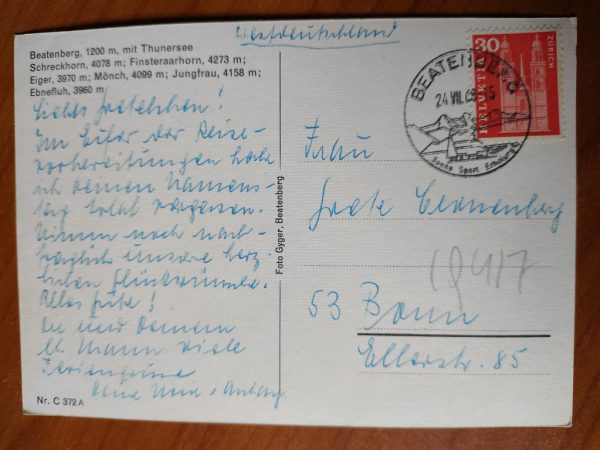 Westdeutschland
Beatenberg, 1200 m, mit Thunersee
Schreckhorn, 4078 m; Finsteraarhorn, 4273 m;
Eiger, 3970 m; Mönch, 4099 m; Jungfrau, 4158 m;
Ebnefluh, 3960 m
Liebes Gretelchen!
Im Eifer der Reise-
vorbereitungen habe
ich Deinen Namens-
tag total vergessen.
Nimm noch nach-
träglich unsere herz-
lichen Glückwünsche.
Alles Gute!
Dir und Deinem
Mann viele
Feriengrüsse
Foto Gyger, Beatenberg
Nr. C 372 A
BEATENBERG
24.VII.68
Sonne Sport Erholung
30
HELVETIA
ZÜRICH
Frau
Grete
53 Bonn
Ellerstr. 85